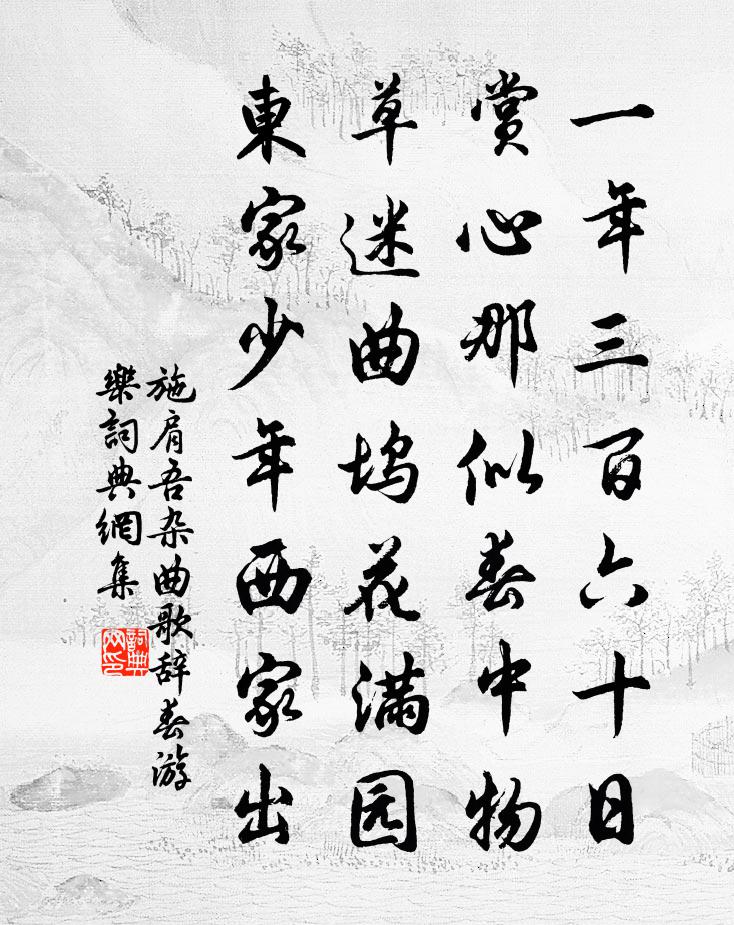 一年三百六十日
赏心那似春中物
草迷曲坞花满园
東家少年西家出
施肩吾杂曲歌辞春游
樂詞典網集
詞典
网印